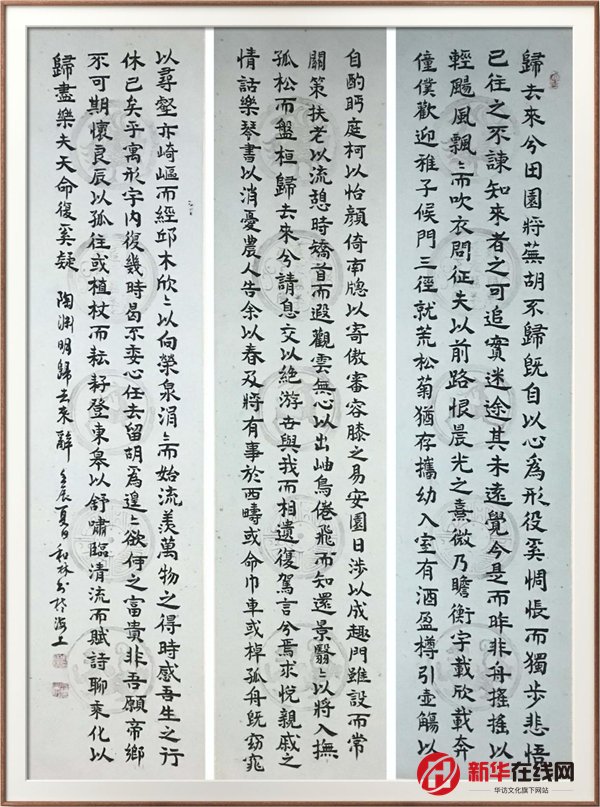 歸去來兮田園將蕪胡不歸既自以心爲形役奚惆悵而獨步悲悟
已往之不諫知來者之可追實迷途其未遠覺今是而昨非舟搖搖以
輕颺風飄〻而吹衣問征夫以前路恨晨光之熹微乃瞻衡宇載欣載奔
僮僕歡迎稚子候門三徑就荒松菊猶存攜幼入室有酒盈樽引壺觴以
自酌眄庭柯以怡顏倚南牕以寄傲審容膝之易安園日涉以成趣門雖設而常
關策扶老以流憩時矯首而遐觀雲無心以出岫鳥倦飛而知還景翳〻以將入撫
孤松而盤桓歸去來兮請息交以絕游世與我而相遺復駕言兮焉求悅親戚之
情話樂琴書以消憂農人告余以春及將有事於西疇或命巾車或棹孤舟既窈窕
以尋壑亦崎嶇而經邱木欣〻以向榮泉涓〻而始流羡萬物之得時感吾生之行
休已矣乎寓形宇內復幾時曷不委心任去留胡爲遑〻欲何之富貴非吾願帝鄉
不可期懷良辰以孤往或植杖而耘耔登東皋以舒嘯臨清流而賦詩聊乘化以
歸盡樂夫天命復奚疑 陶渊明歸去來辭 壬辰夏日和林书於海上
新华在线网
华访文化旗下网站